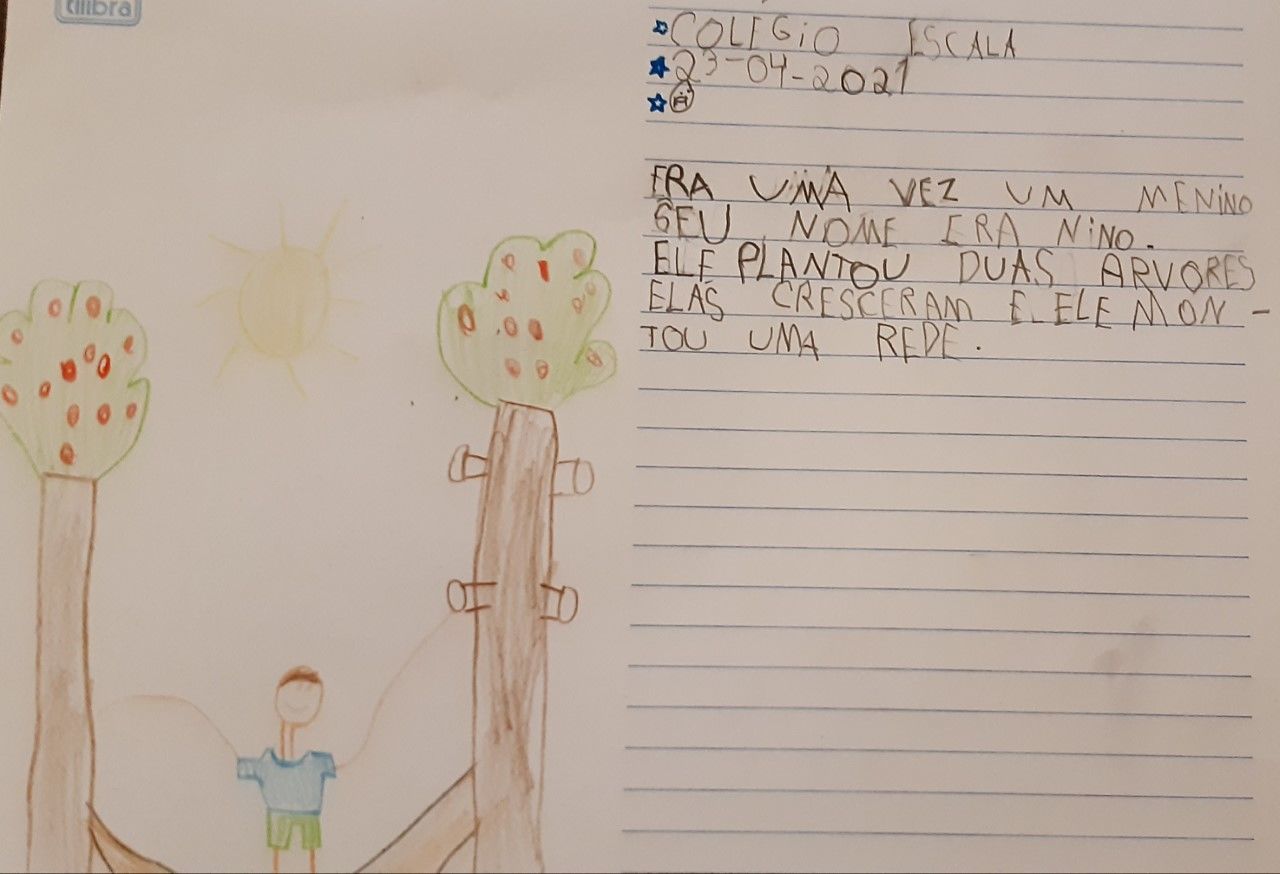 tilibra
COLEGIO ESCALA
23-04-2021
ERA UMA VEZ UM MENINO
SEU NOME ERA NINO.
ELE PLANTOU DUAS ARVORES
ELAS CRESCERAM E ELE MON-
TOU UMA REDE.